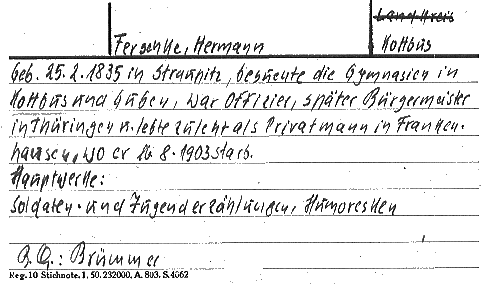 Land Kreis
Ferschke, Hermann Kottbus
Geb. 25. 2. 1835 in Straupitz, besuchte die Gymnasien in
Kottbus und Guben, war Offizier, später Bürgermeister
in Thüringen u. lebte zuletzt als Privatmann in Franken-
hausen, wo er 16 8. 1903 starb.
Hauptwerke:
Soldaten- und Jugenderzählungen, Humoresken
B.Q.: Brümmer
Reg. 10 Stichnote. 1, 50. 232000. A. 803. S. 4662